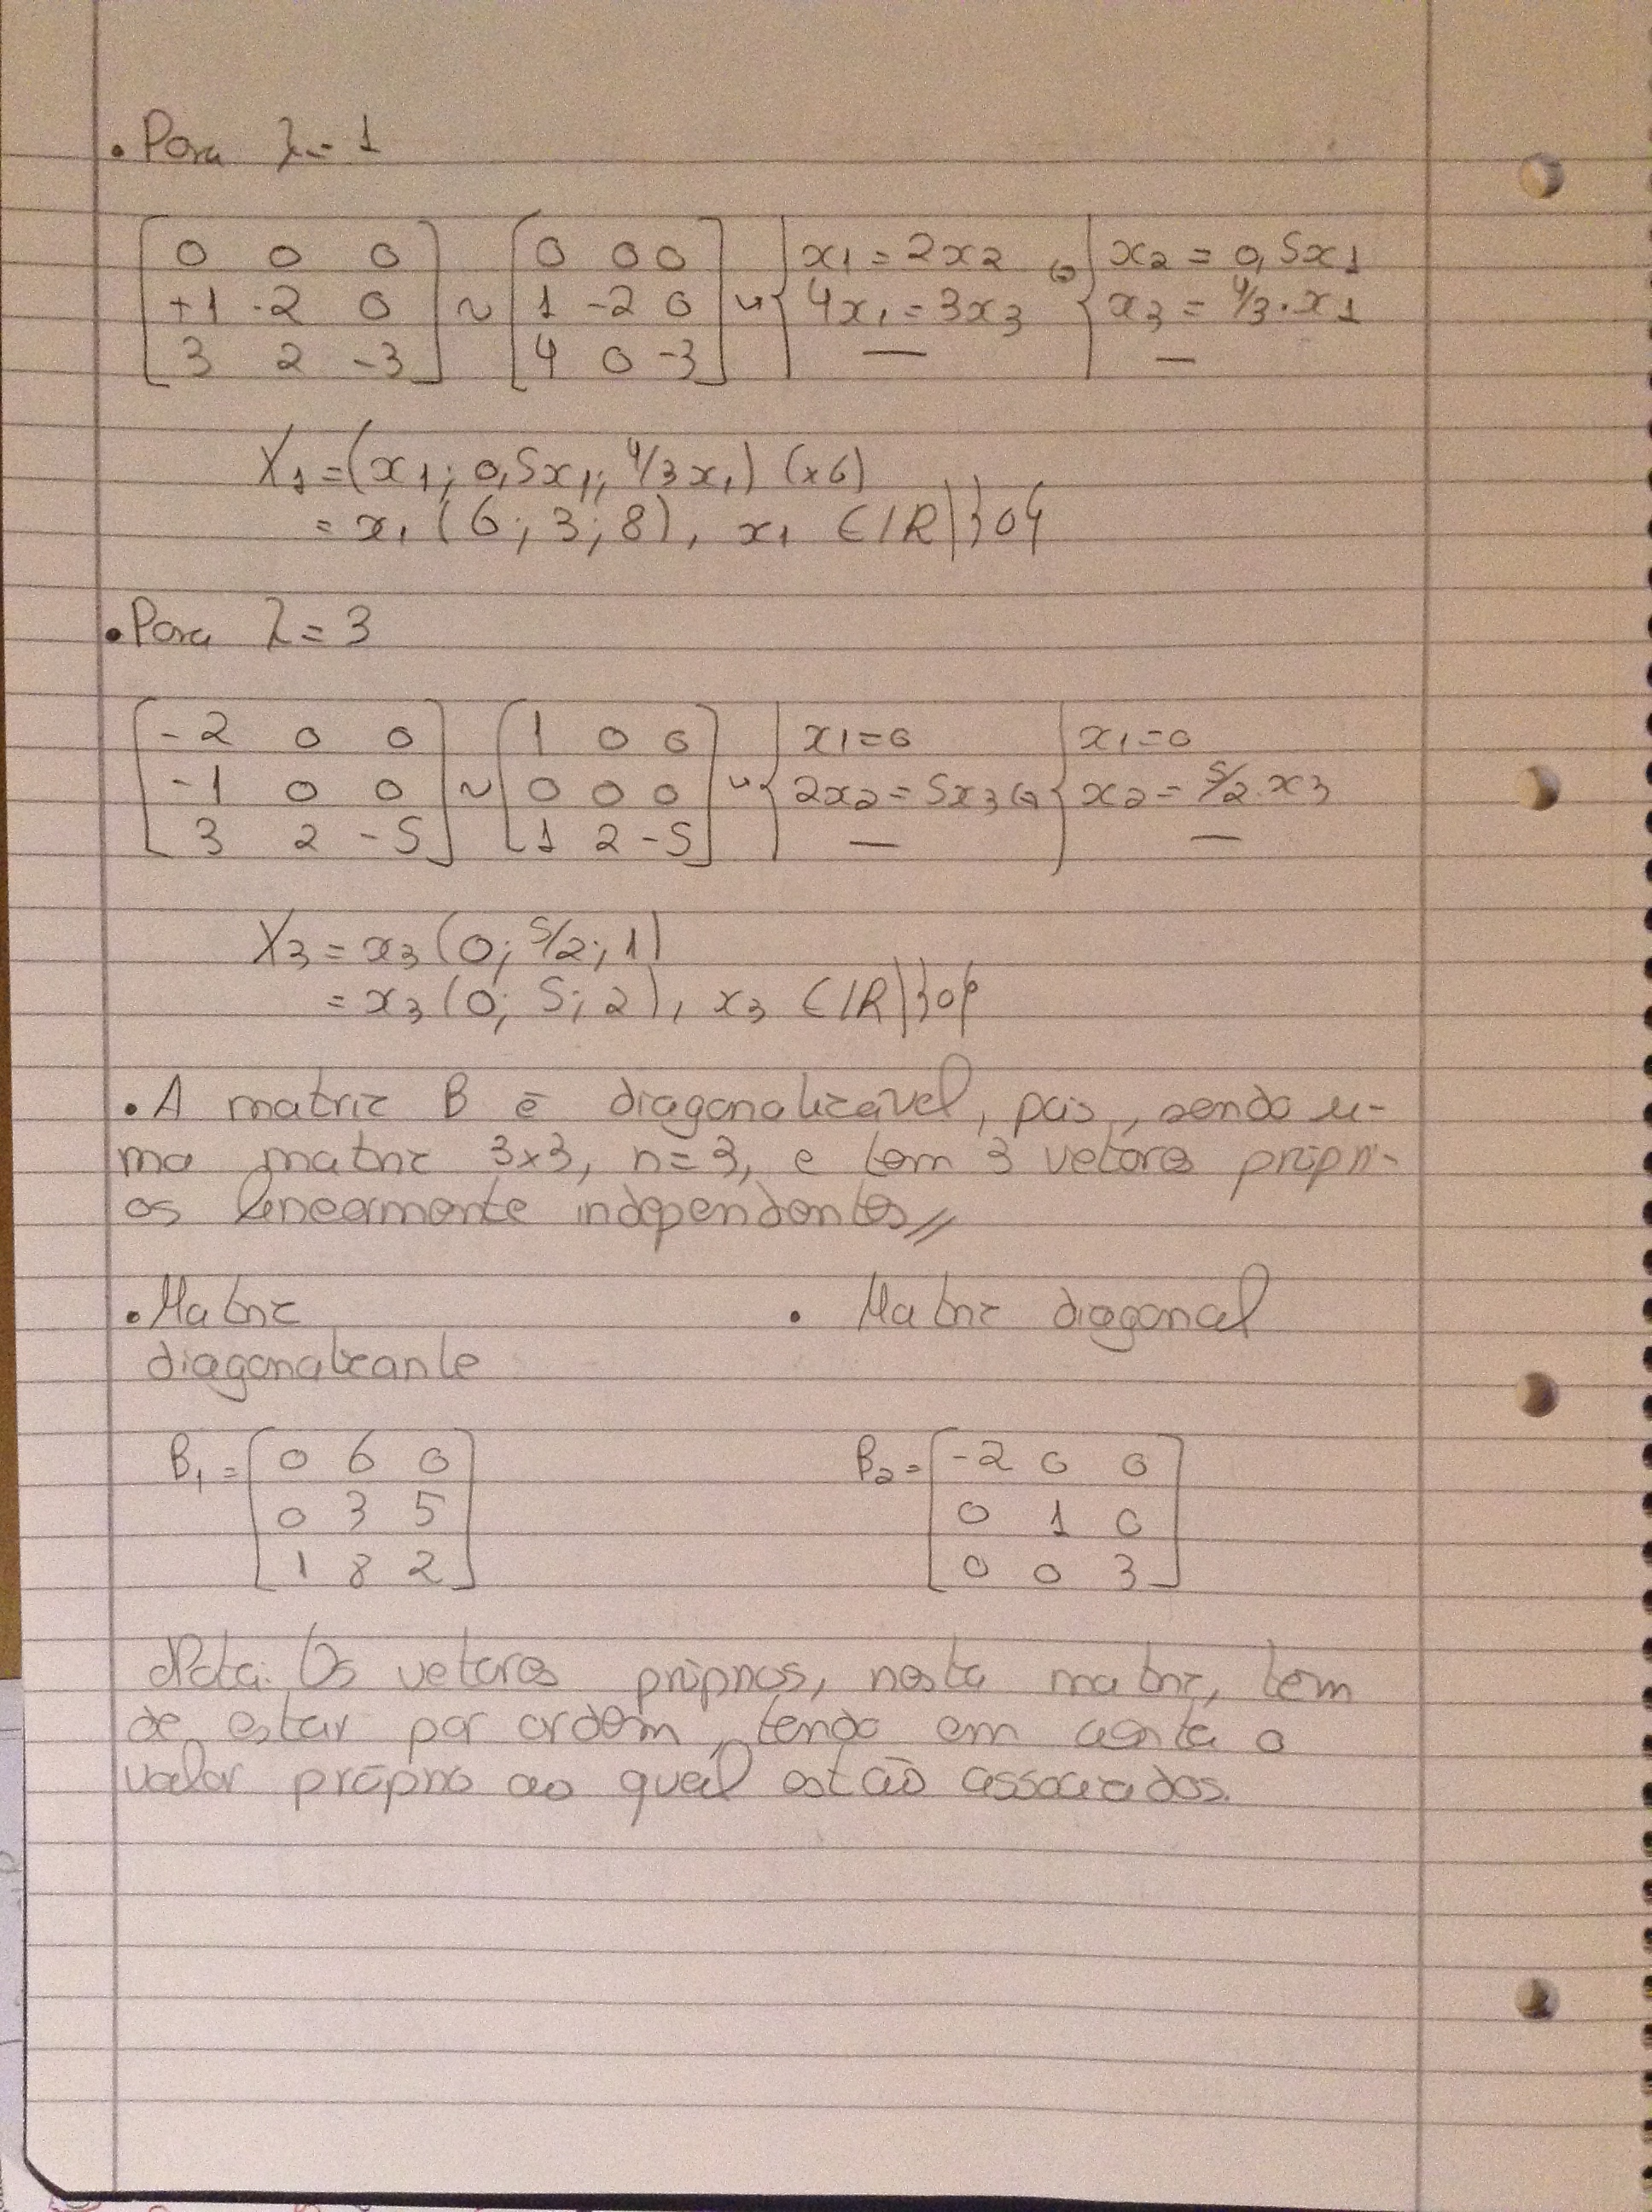 • Para λ = 1
[0 0 0; +1 -2 0; 3 2 -3] ~ [0 0 0; 1 -2 0; 4 0 -3] ↪ { x1 = 2x2 ; 4x1 = 3x3 ; — ⇔ { x2 = 0,5x1 ; x3 = 4/3 . x1 ; —
X1 = (x1; 0,5x1; 4/3 x1) (×6)
= x1 (6; 3; 8), x1 ∈ IR\{0}
• Para λ = 3
[-2 0 0; -1 0 0; 3 2 -5] ~ [1 0 0; 0 0 0; 1 2 -5] ↪ { x1 = 0 ; 2x2 = 5x3 ; — ⇔ { x1 = 0 ; x2 = 5/2 . x3 ; —
X3 = x3 (0; 5/2; 1)
= x3 (0; 5; 2), x3 ∈ IR\{0}
• A matriz B é diagonalizável, pois, sendo u-
ma matriz 3x3, n = 3, e tem 3 vetores própri-
os linearmente independentes //
• Matriz • Matriz diagonal
diagonalizante
B1 = [0 6 0; 0 3 5; 1 8 2] B2 = [-2 0 0; 0 1 0; 0 0 3]
Nota: Os vetores próprios, nesta matriz, têm
de estar por ordem, tendo em conta o
valor próprio ao qual estão associados.